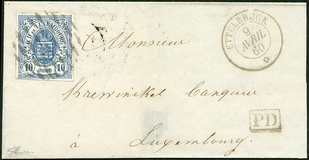 ETTELBRUCK
9
AVRIL
60
10 10
Monsieur
Krewinckel Banquier
à Luxembourg.
PD